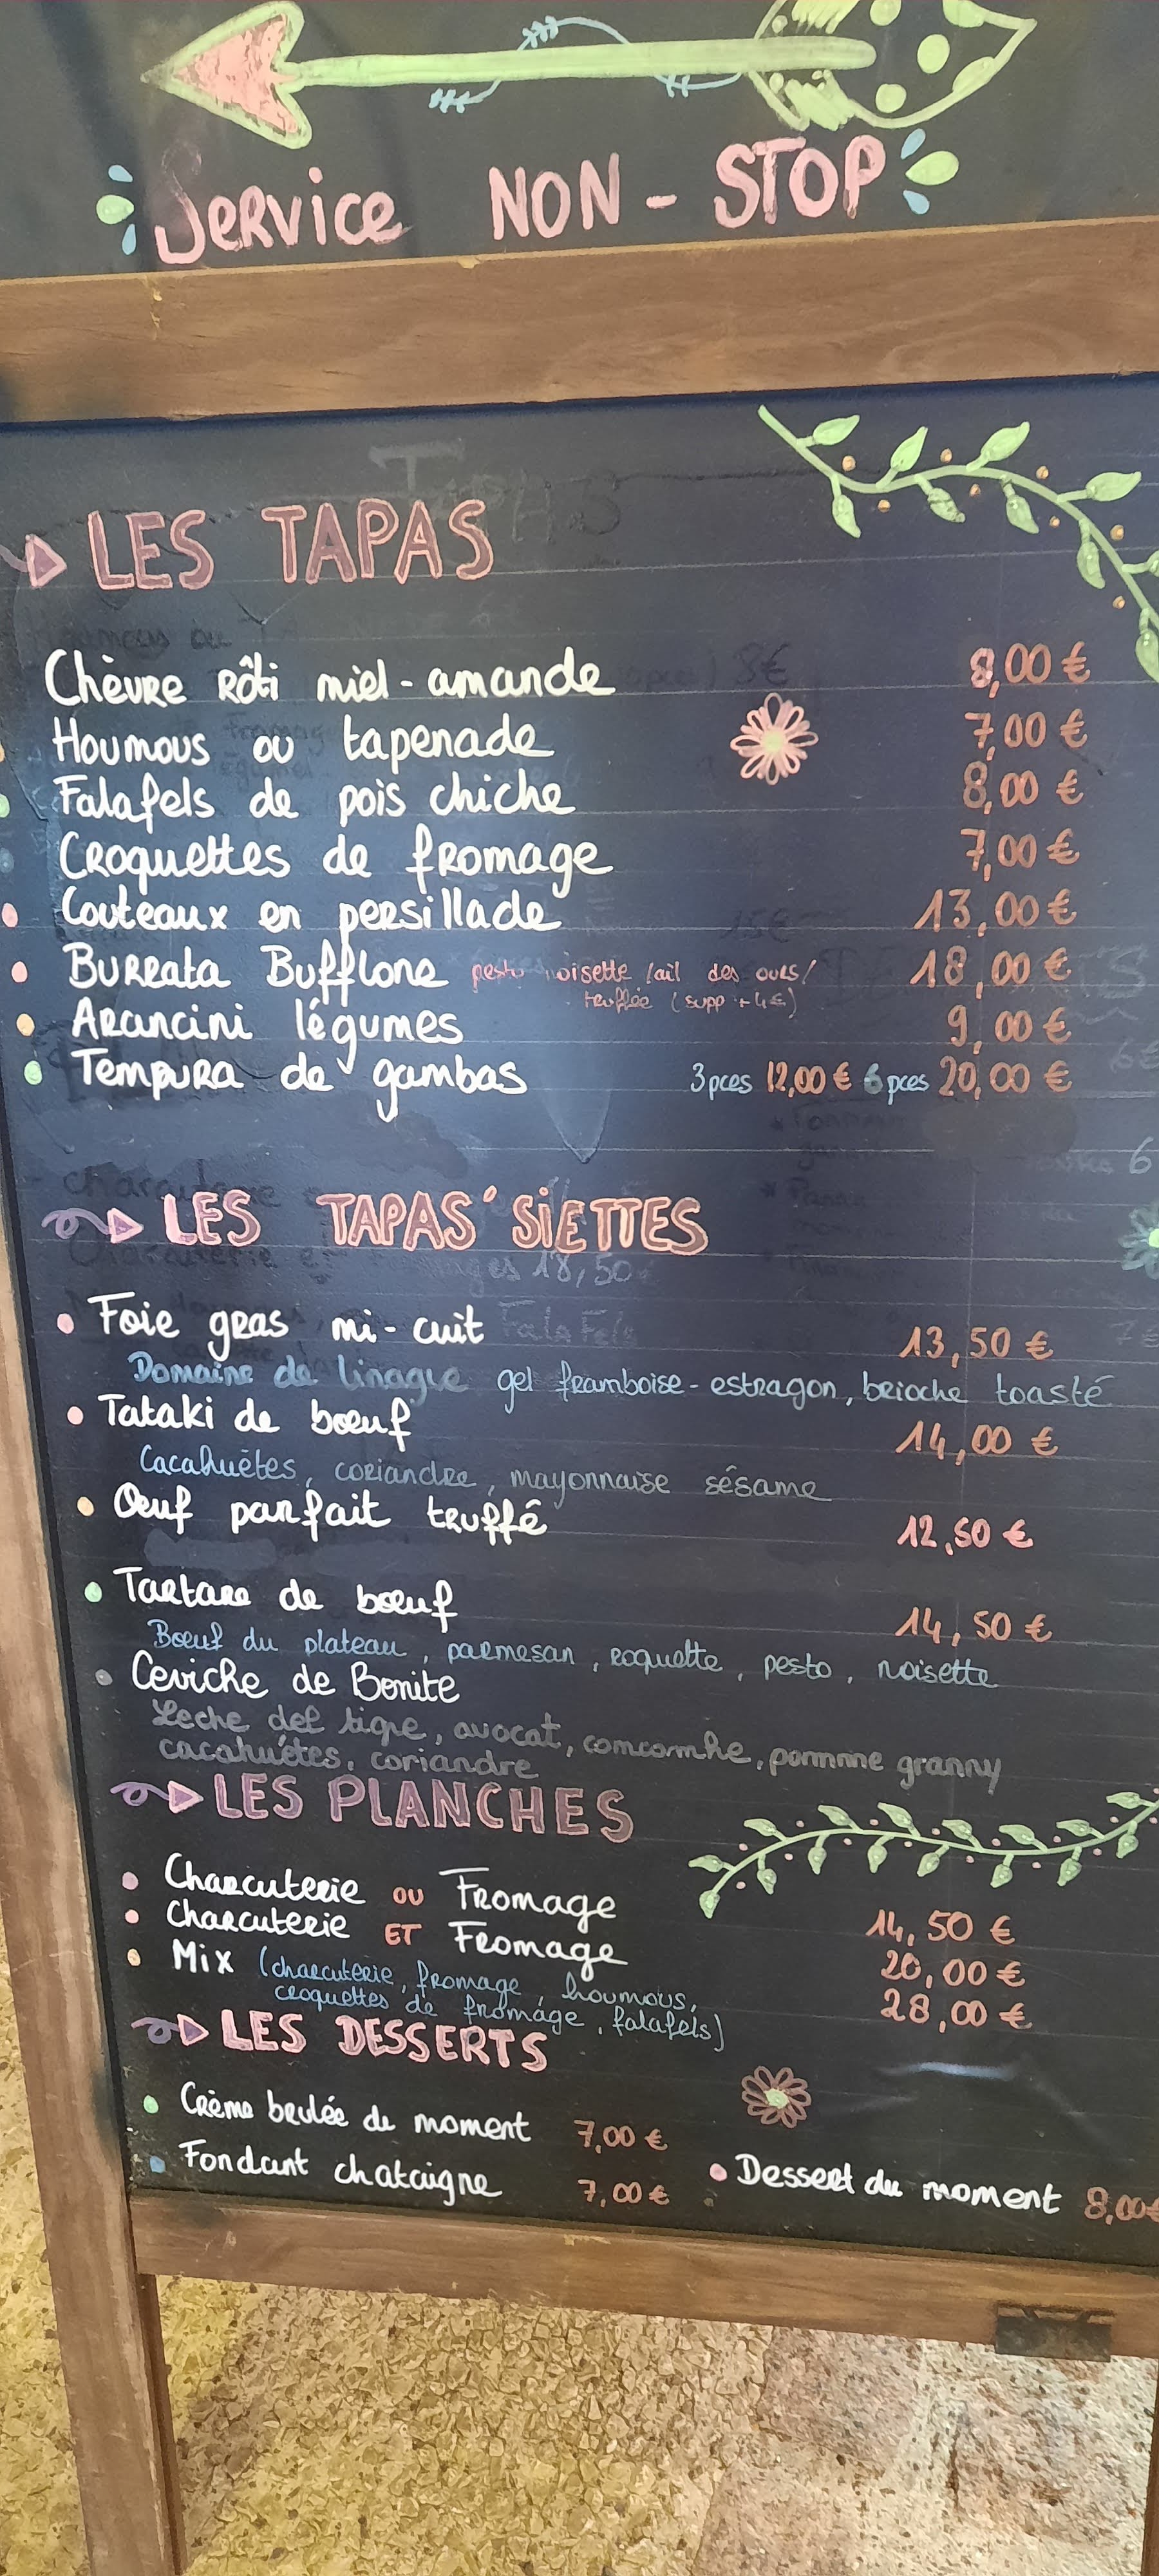 Service NON-STOP
LES TAPAS
Chèvre rôti miel-amande 8,00 €
Houmous ou tapenade 7,00 €
Falafels de pois chiche 8,00 €
Croquettes de fromage 7,00 €
Couteaux en persillade 13,00 €
Burrata Bufflone pesto noisette / ail des ours / 18,00 €
truffée (supp + 4€)
Arancini légumes 9,00 €
Tempura de gambas 3 pces 12,00 € 6 pces 20,00 €
LES TAPAS'SiETTES
Foie gras mi-cuit 13,50 €
Domaine de Linague gel framboise-estragon, brioche toasté
Tataki de bœuf 14,00 €
Cacahuètes, coriandre, mayonnaise sésame
Œuf parfait truffé 12,50 €
Tartare de bœuf 14,50 €
Bœuf du plateau, parmesan, roquette, pesto, noisette
Ceviche de Bonite
Leche del tigre, avocat, comcombre, pomme granny
cacahuètes, coriandre
LES PLANCHES
Charcuterie ou Fromage 14,50 €
Charcuterie ET Fromage 20,00 €
Mix (charcuterie, fromage, houmous, 28,00 €
croquettes de fromage, falafels)
LES DESSERTS
Crème brulée du moment 7,00 €
Fondant chataigne 7,00 €
Dessert du moment 8,00€